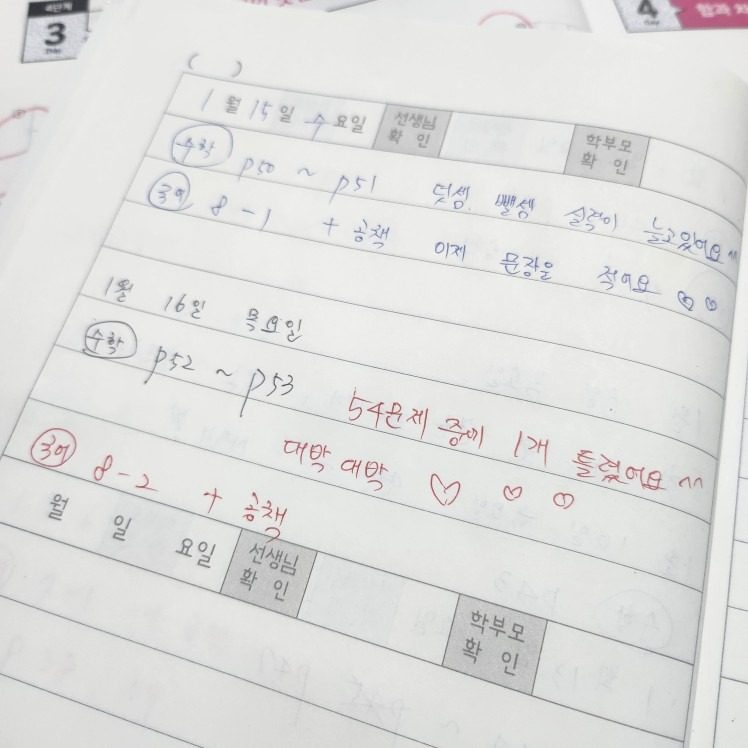 4단계
3
DAY
4
DAY
함과 차
( )
1월 15일 수요일 선생님 확인 학부모 확인
수학 p50 ~ p51 덧셈. 뺄셈 실력이 늘고있어요^^
국어 8-1 + 공책 이제 문장을 적어요 ♡♡
1월 16일 목요일
수학 p52 ~ p53 54문제 중에 1개 틀렸어요 ^^
대박 대박 ♡ ♡ ♡
국어 8-2 + 공책
월 일 요일 선생님 확인 학부모 확인